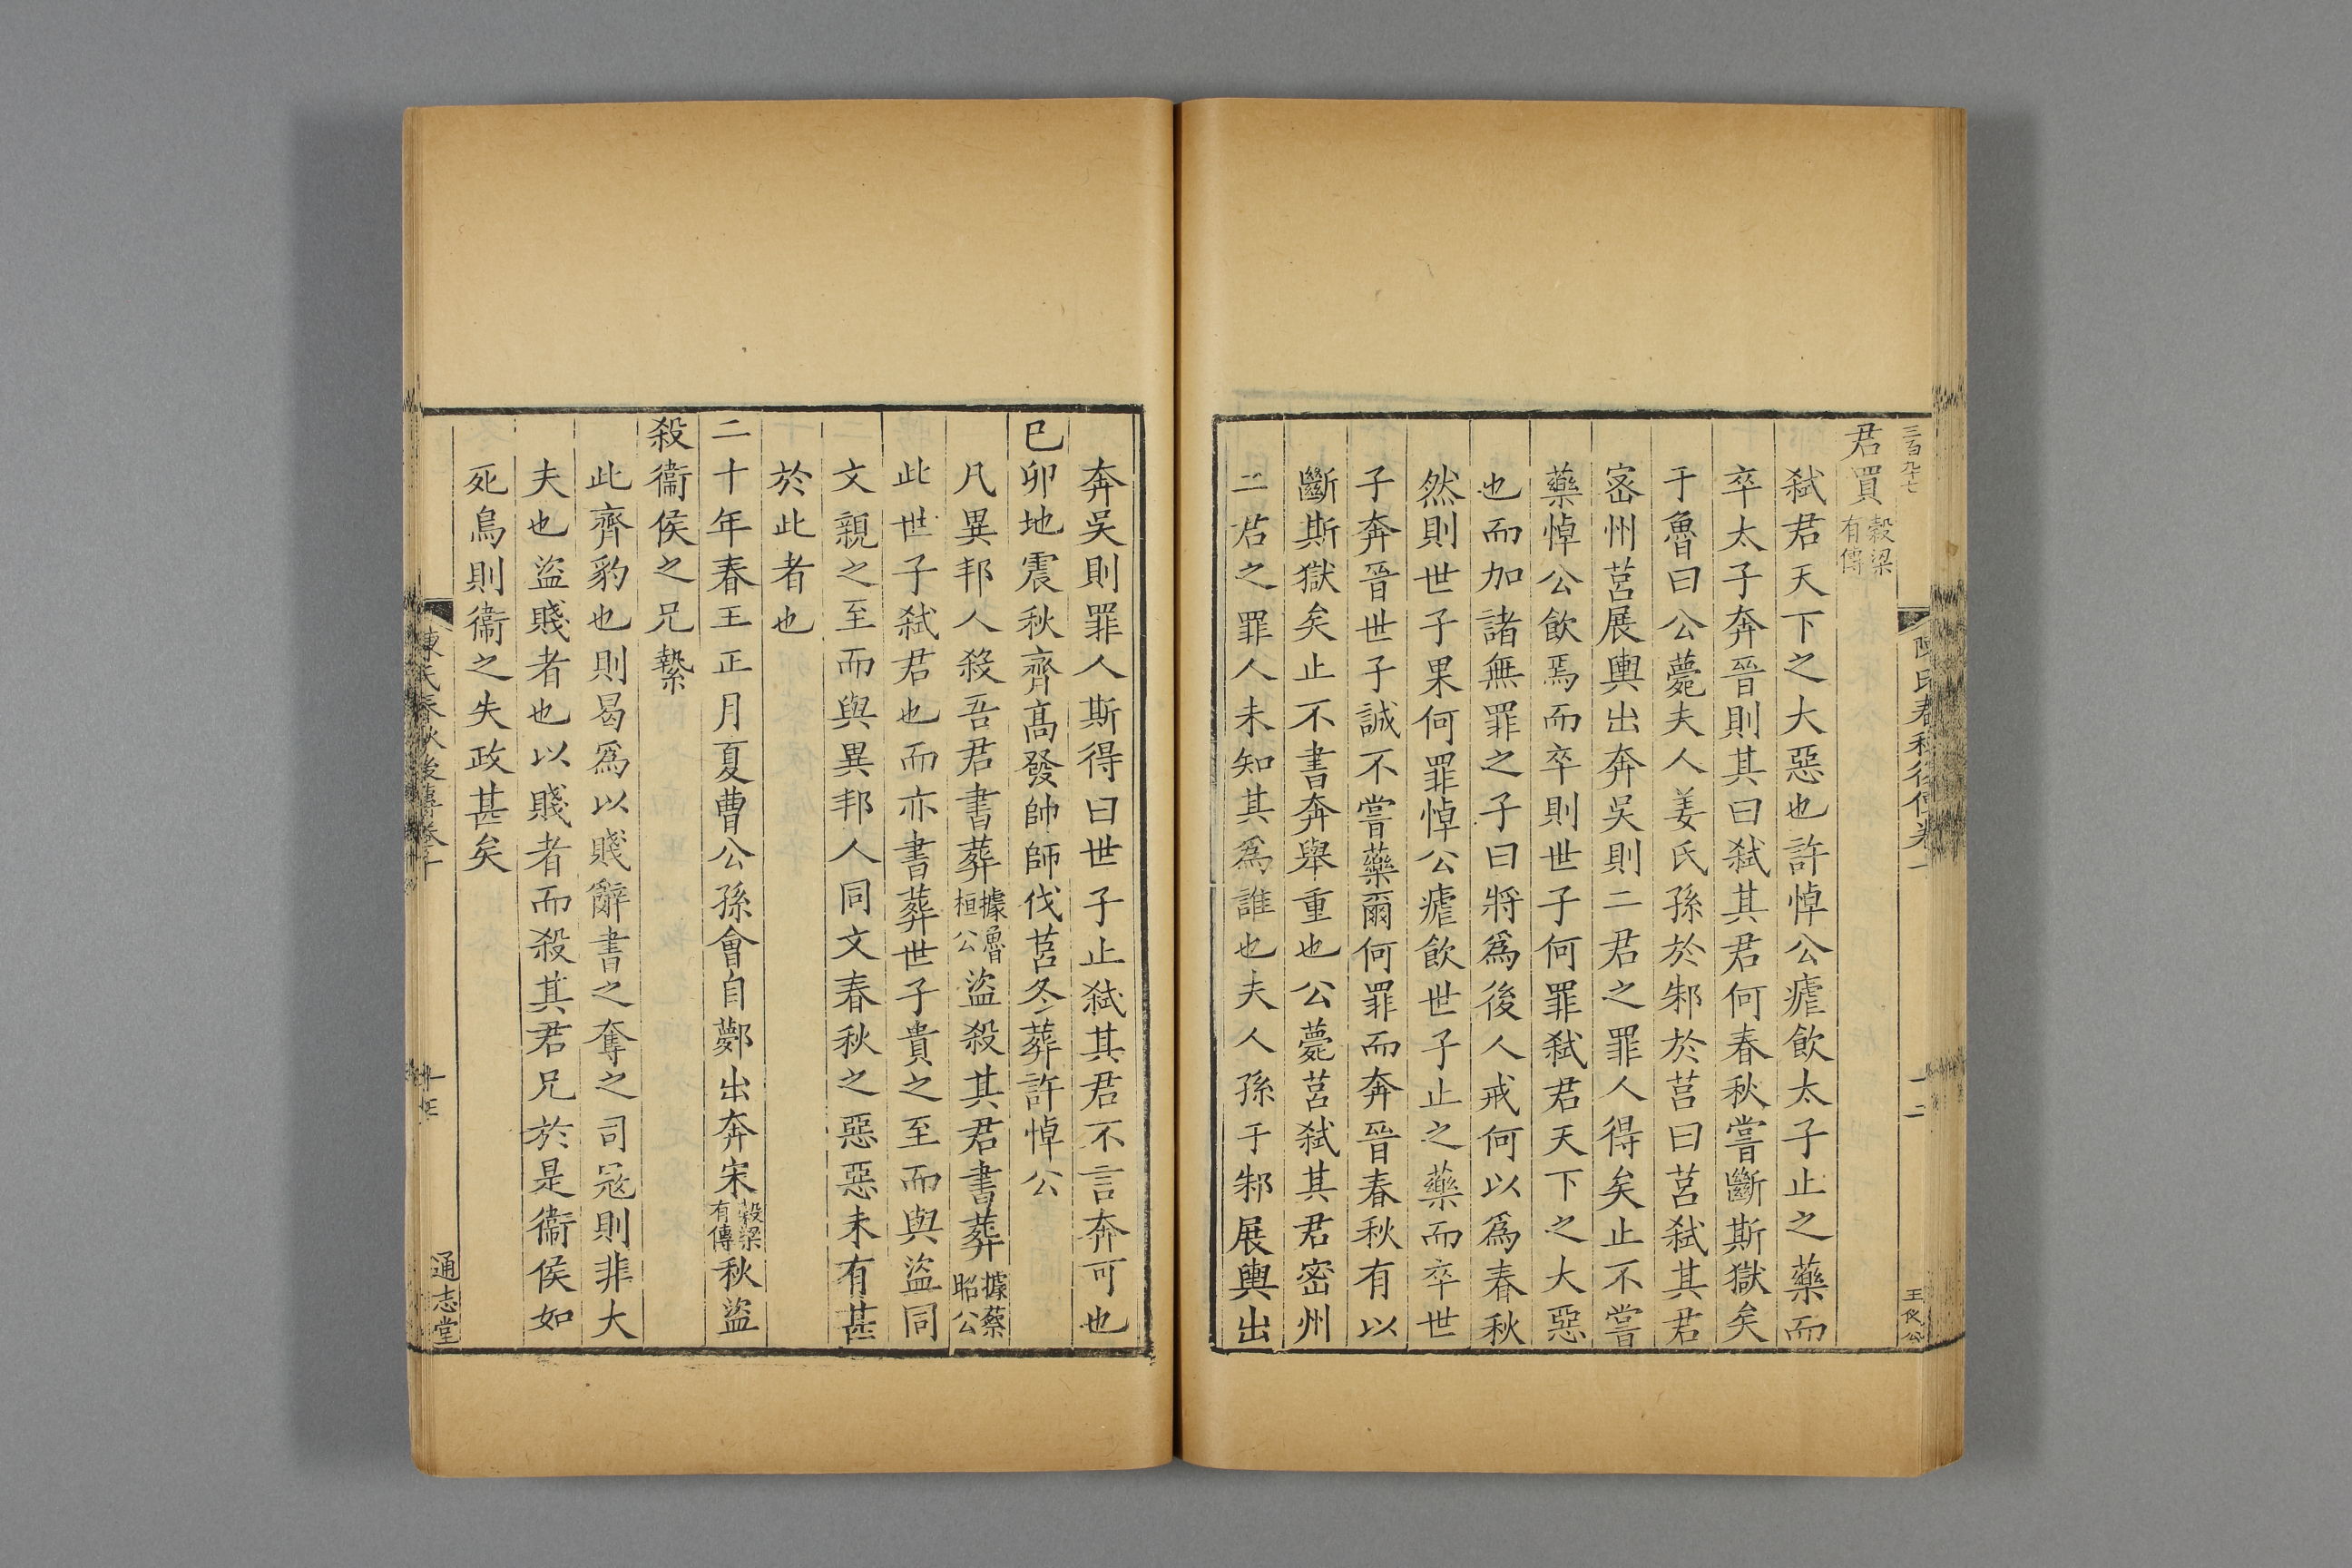 三百九十七
君買穀梁有傳
弑君天下之大惡也許悼公瘧飲太子止之藥而
卒太子奔晉則其曰弑其君何春秋嘗斷斯獄矣
于魯曰公薨夫人姜氏孫於邾於莒曰莒弑其君
密州莒展輿出奔吳則二君之罪人得矣止不嘗
藥悼公飲焉而卒則世子何罪弑君天下之大惡
也而加諸無罪之子曰將爲後人戒何以爲春秋
然則世子果何罪悼公瘧飲世子止之藥而卒世
子奔晉世子誠不嘗藥爾何罪而奔晉春秋有以
斷斯獄矣止不書奔舉重也公薨莒弑其君密州
二君之罪人未知其爲誰也夫人孫于邾展輿出
奔吳則罪人斯得曰世子止弑其君不言奔可也
巳卯地震秋齊髙發帥師伐莒冬葬許悼公
凡異邦人殺吾君書葬據魯桓公盜殺其君書葬據蔡昭公
此世子弑君也而亦書葬世子貴之至而與盜同
文親之至而與異邦人同文春秋之惡惡未有甚
於此者也
二十年春王正月夏曹公孫會自鄸出奔宋穀梁有傳秋盜
殺衞侯之兄縶
此齊豹也則曷爲以賤辭書之奪之司冦則非大
夫也盜賤者也以賤者而殺其君兄於是衞侯如
死鳥則衞之失政甚矣
陳氏春秋後傳卷十
通志堂